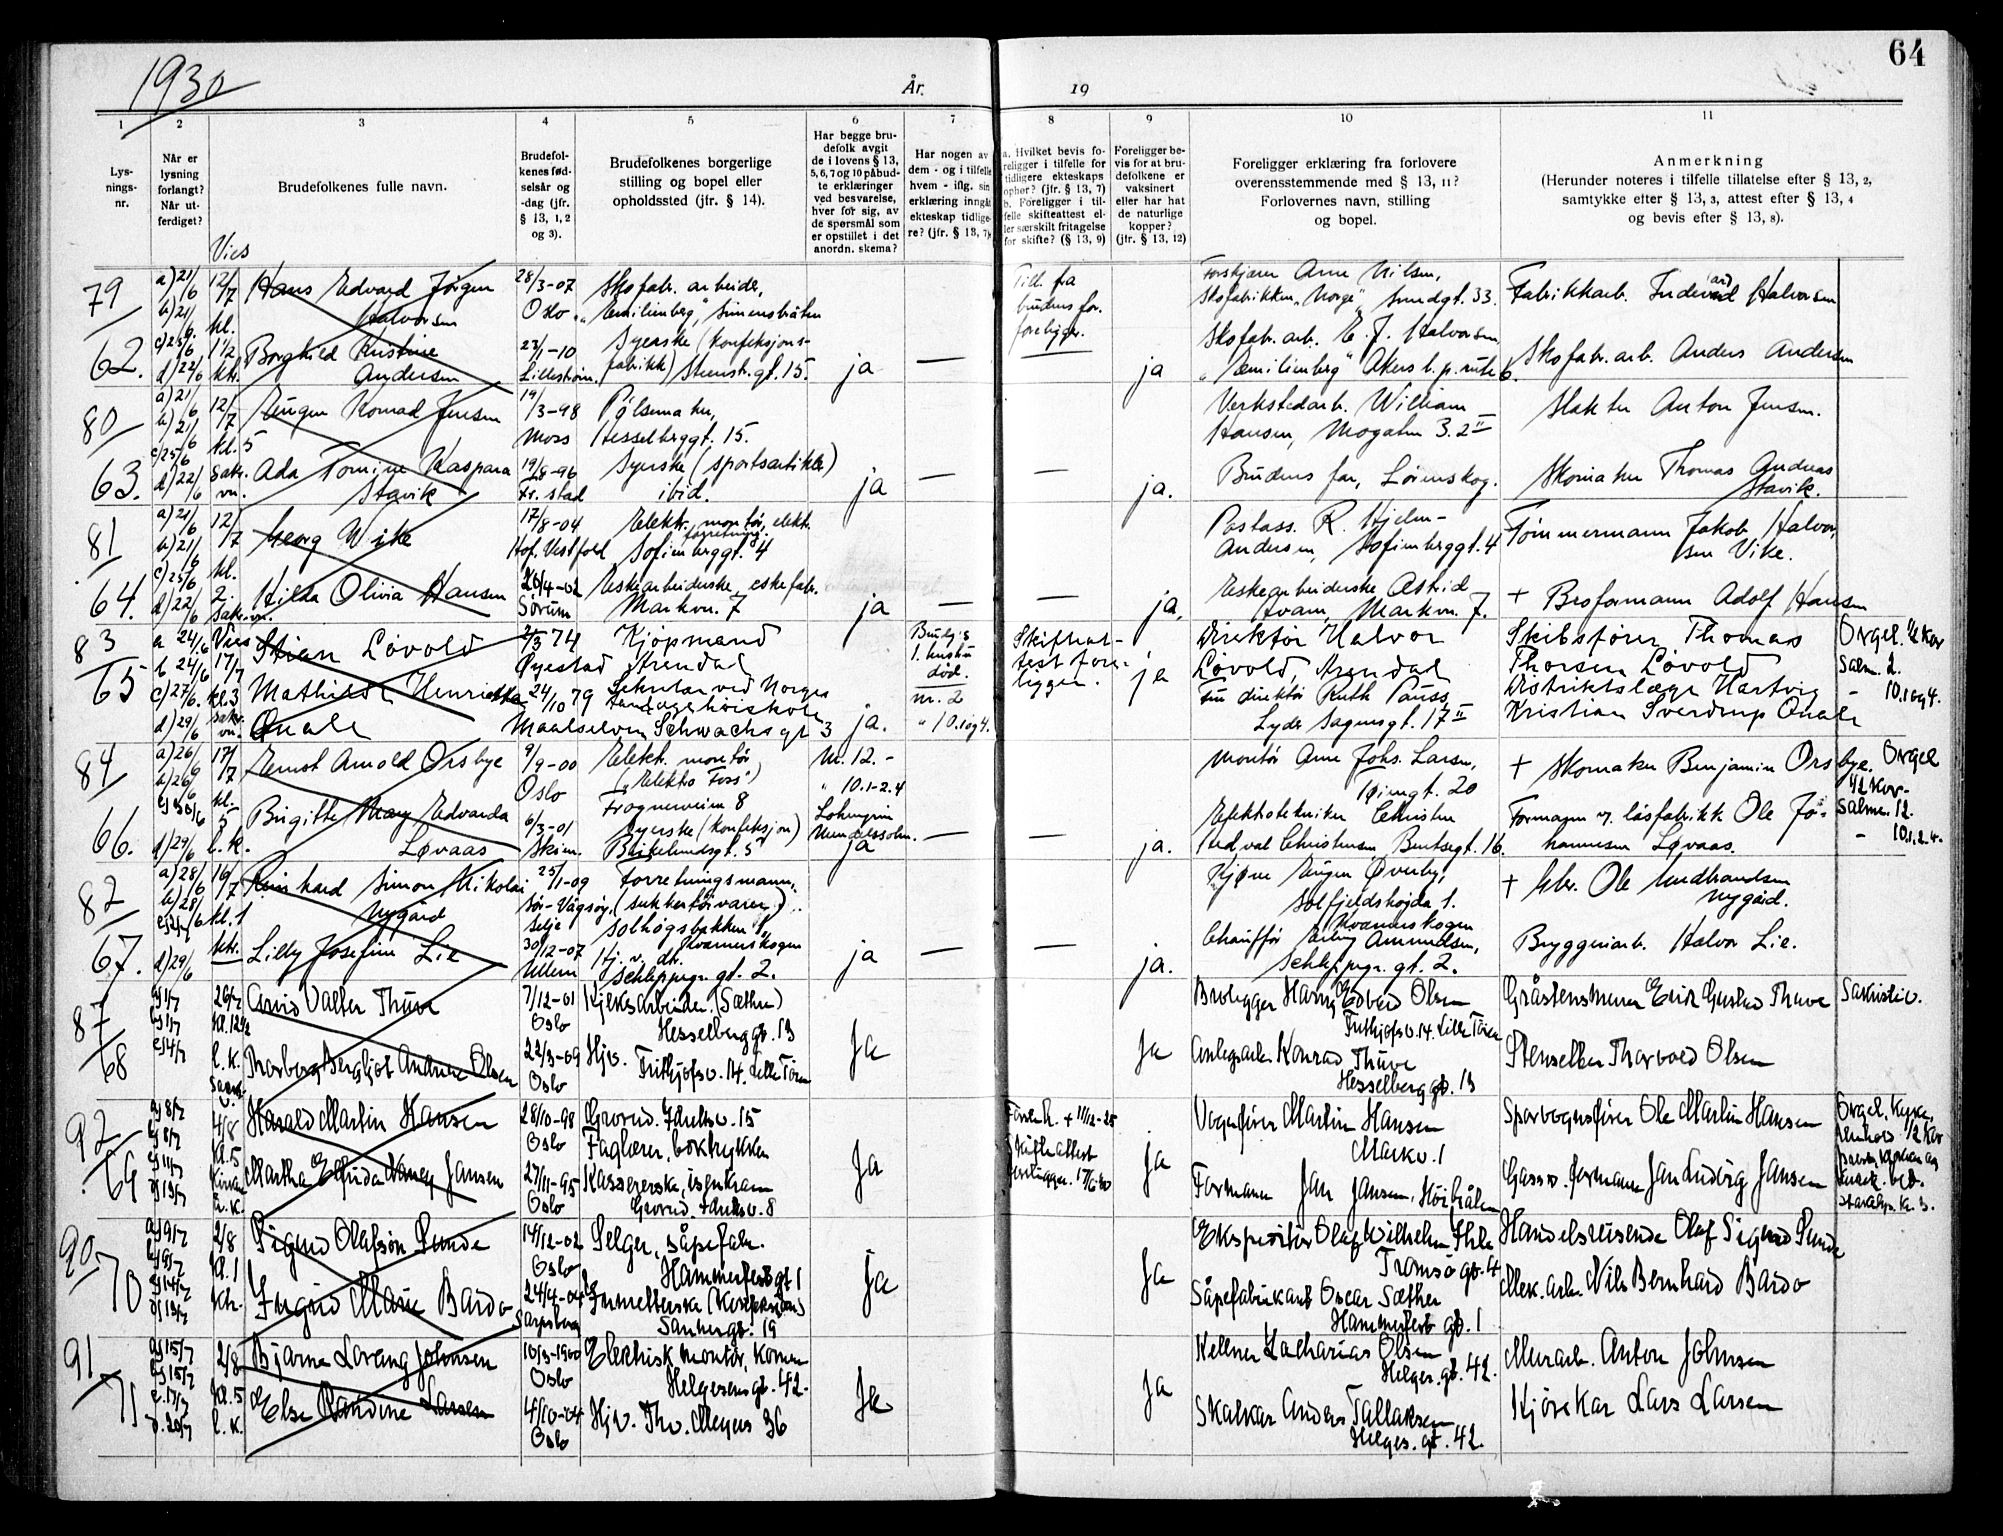 1930
År.
19
64
1
2
3
4
5
6
7
8
9
10
11
Lys-
nings-
nr.
Når er
lysning
forlangt?
Når ut-
ferdiget?
Brudefolkenes fulle navn.
Vies
Brudefol-
kenes fød-
selsår og
-dag (jfr.
§ 13, 1, 2
og 3).
Brudefolkenes borgerlige
stilling og bopel eller
opholdssted (jfr. § 14).
Har begge bru-
defolk avgit
de i lovens § 13,
5, 6, 7 og 10 påbud-
te erklæringer
ved besvarelse,
hver for sig, av
de spørsmål som
er opstillet i det
anordn. skema?
Har nogen av
dem - og i tilfelle
hvem - iflg. sin
erklæring inngåt
ekteskap tidlige-
re? (jfr. § 13, 7).
a. Hvilket bevis fo-
religger i tilfelle for
tidligere ekteskaps
ophør? (jfr. § 13, 7)
b. Foreligger i til-
felle skifteattest el-
ler særskilt fritagelse
for skifte? (§ 13, 9)
Foreligger be-
vis for at bru-
defolkene er
vaksinert
eller har hat
de naturlige
kopper?
(jfr. § 13, 12)
Foreligger erklæring fra forlovere
overensstemmende med § 13, 11?
Forlovernes navn, stilling
og bopel.
Anmerkning
(Herunder noteres i tilfelle tillatelse efter § 13, 2,
samtykke efter § 13, 3, attest efter § 13, 4
og bevis efter § 13, 8).
79
62.
a) 21/6
b) 21/6
c) 25/6
d) 22/6
12/7
kl.
1 1/2
ktr.
Hans Edvard Jörgen
Halvorsen
Borghild Kristine
Andersen
28/3-07
Oslo
23/1-10
Lillestrøm.
Skofabr. arbeider,
"Emilienberg", Simensbråten
Syerske (konfeksjons-
fabrikk) Steenstr. gt. 15.
ja
—
Till. fra
brudens for.
foreligger.
—
ja
Forskjærer Arne Nilsen,
Skofabrikken "Norge", Sundgt. 33.
Skofabr. arb. E. J. Halvorsen
"Emilienberg" Akers b. p. rute 6.
Fabrikkarb. Halvorsen
Skofabr. arb. Anders Andersen
80
63.
a) 21/6
b) 21/6
c) 25/6
d) 22/6
12/7
kl. 5
Sakr.
vn.
Eugen Konrad Jensen
Ada Tomine Kaspara
Stavik
19/3-98
Moss
19/8-96
Fr. stad
Pölsemaker,
Hesselberggt. 15.
Syerske (sportsartikler)
ibid.
ja
—
—
ja.
Verkstedarb. William
Hansen, Mogaten 3. 2 II
Brudens far, Lørenskog.
Slakter Anton Jensen.
Skomaker Thomas Andreas
Stavik.
81
64.
a) 21/6
b) 21/6
c) 25/6
d) 22/6
12/7
kl.
2.
Sakr. vn.
Georg Wike
Hilda Olivia Hansen
17/8-04
Hof. Vestfold
26/4-02
Sörum
Elektr. montör, elekt.
forretning.
Sofienberggt. 4
Eskearbeiderske, eskefabr.
Markvn. 7
ja
—
—
ja,
Postass. R. Hjelm-
Andersen, Sofienberggt. 4
Eskearbeiderske Astrid
Markvn. 7.
Tømmermann Jakob Halvor
sen Vike.
+ Broformann Adolf Hansen
83
65
a 24/6
b 24/6
c) 27/6.
d) 29/6
Vies
17/7
kl. 3
sakr.
vn.
Stian Lövold
Mathilde Henriette
Qvale
2/3 74
Øyestad
24/10 79
Maalselven
Kjöpmand
Arendal
Sekretær ved Norges
Landbrukshöiskole
Schwachsgt 3
ja.
Brudg.s
1. hustru
död.
nr. 2
" 10.1 og 4.
Skifteat-
test fore-
ligger.
ja
Direktör Halvor
Lövold, Arendal
Fru direktör Ruth Pauss
Lyder Sagensgt. 17 II
Skibsförer Thomas
Thorsen Lövold
Distriktslæge Hartvig
Kristian Sverdrup Qvale
Orgel. 1/2 kor
Salm. 2.
- 10.1 og 4.
84
66.
a) 26/6
b) 26/6
c) 30/6
d) 29/6
17/7
kl.
5
l. k.
Ernst Arnold Orsbye
Birgitte Mary Edvarda
Løvaas
9/9-00
Oslo
6/3-01
Skien.
Elektr. montör
("Elektro Fors")
Frognerveien 8
Syerske (konfeksjon)
Birkelundsgt. 5
Nr. 12. -
" 10.1-2.4
Lohengrin
Mendelssohn.
ja
—
—
ja.
Montör Arne Johs. Larsen,
Elektrotekniker Christen
Hedval Christensen Bentsegt. 16.
+ Skomaker Benjamin Orsbye.
Formann v. låsfabrikk Ole Jo-
hannesen Løvaas.
Orgel
1/2 kor-
Salme. 12.
- 10.1.2.4.
82
67.
a) 28/6
b) 28/6
d) 29/6
19/7
kl. 1
ktr.
Reinhard Simon Nikolai
Nygård
Lilly Josefine Lie
25/1-09
Sör-Vågsöy,
Selje
30/12-07
Ullern
Forretningsmann,
(sukkertöivarer)
Solhögsbakken 1,
Kværnerskogen
Hj. v. dr.
Schleppegr. gt. 2.
ja
—
—
ja.
Eugen Øverby,
Solfjeldshøjda 1.
Kværnerskogen
Chauffør Erling Amundsen,
Schleppegr. gt. 2.
+ Gbr. Ole Gudbrandsen
Nygård.
Bryggeriarb. Halvor Lie.
87
68
a) 1/7
b) 1/7
c) 4/7
26/7
kl. 12 1/2
l. K.
Arvid Valter Thuve
Thorborg Bergljot Andrine Olsen
7/12-01
Oslo
22/3-09
Oslo
Kjeksarbeider. (Sæthre)
Hesselberg gt. 13
Hjv. Frithjofsv. 14. Lille Tøien
Ja
Ja
Brolegger Harry Edvard Olsen
Frithjofsv. 14. Lille Tøien
Anlegsarb. Konrad Thuve
Hesselberg gt. 13
Gråstensmurer Erik Gustav Thuve
Stenselber Thorvald Olsen
Sakristiv.
92
69
a) 8/7
b) 8/7
c) 11/7
d) 13/7
4/8
Kl. 5
Harald Martin Hansen
Martha Elfrida Nancy Jansen
28/10-98
Oslo
27/11-95
Oslo
Grorud. v. 15
Faglærer, boktrykker
Kassererske, isenkram
Grorud. v. 8
Ja
+ 11/12-25
Skifteattest
foreligger. 17/6-30
Ja
Vognfører Martin Hansen
Markv. 1
Formann Jan Jansen, Höibråten
Sporvognsfører Ole Martin Hansen
Gassv. formann Jan Ludvig Jansen
Orgel, Kyrre,
1/2 kor
90
70
a) 9/7
b) 9/7
c) 14/7
d) 13/7
2/8
Kl. 1
Ktr.
Sigurd Olafsön Sunde
Ingrid Marie Bardo
14/12-02
Oslo
24/4-04
Sarpsborg
Selger, såpefabr.
Hammerfest gt 1
(Konfeksjon)
Sannergt. 19
Ja
Ja
Ekspeditör Olaf Wilhelm Ihle
Tromsö gt. 4
Såpefabrikant Oscar Sæther
Hammerfest gt. 1
Handelsreisende Olaf Sigurd Sunde
Mek. arb. Nils Bernhard Bardo
91
71
a) 15/7
b) 15/7
c. 17/7
d. 20/7
2/8
Kl. 5
l. K.
Bjarne Lorang Johnsen
Else Randine Larsen
10/3-1900
Oslo
4/10-04
Oslo
Elektrisk montör, Kommun
Helgesens gt. 42.
Hjv. Thv. Meyers 36
Ja
Ja
Kellner Zacharias Olsen
Helges. gt. 42.
Anders Tallaksen
Helges. gt. 42.
Murarb. Anton Johnsen
Kjörekar Lars Larsen